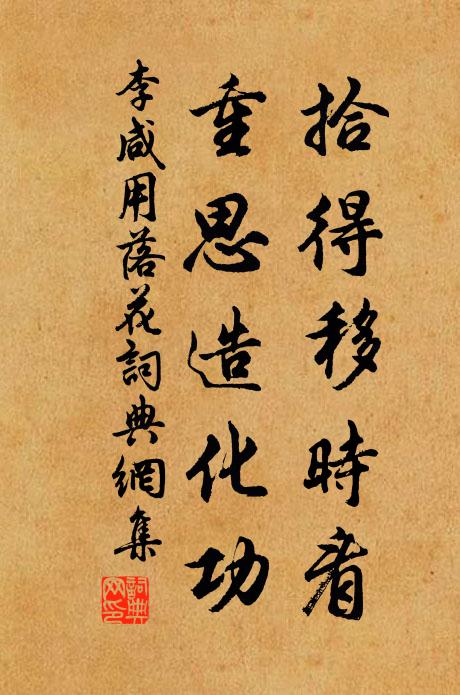 拾得移時看
重思造化功
李咸用落花詞典網集
詞典網印